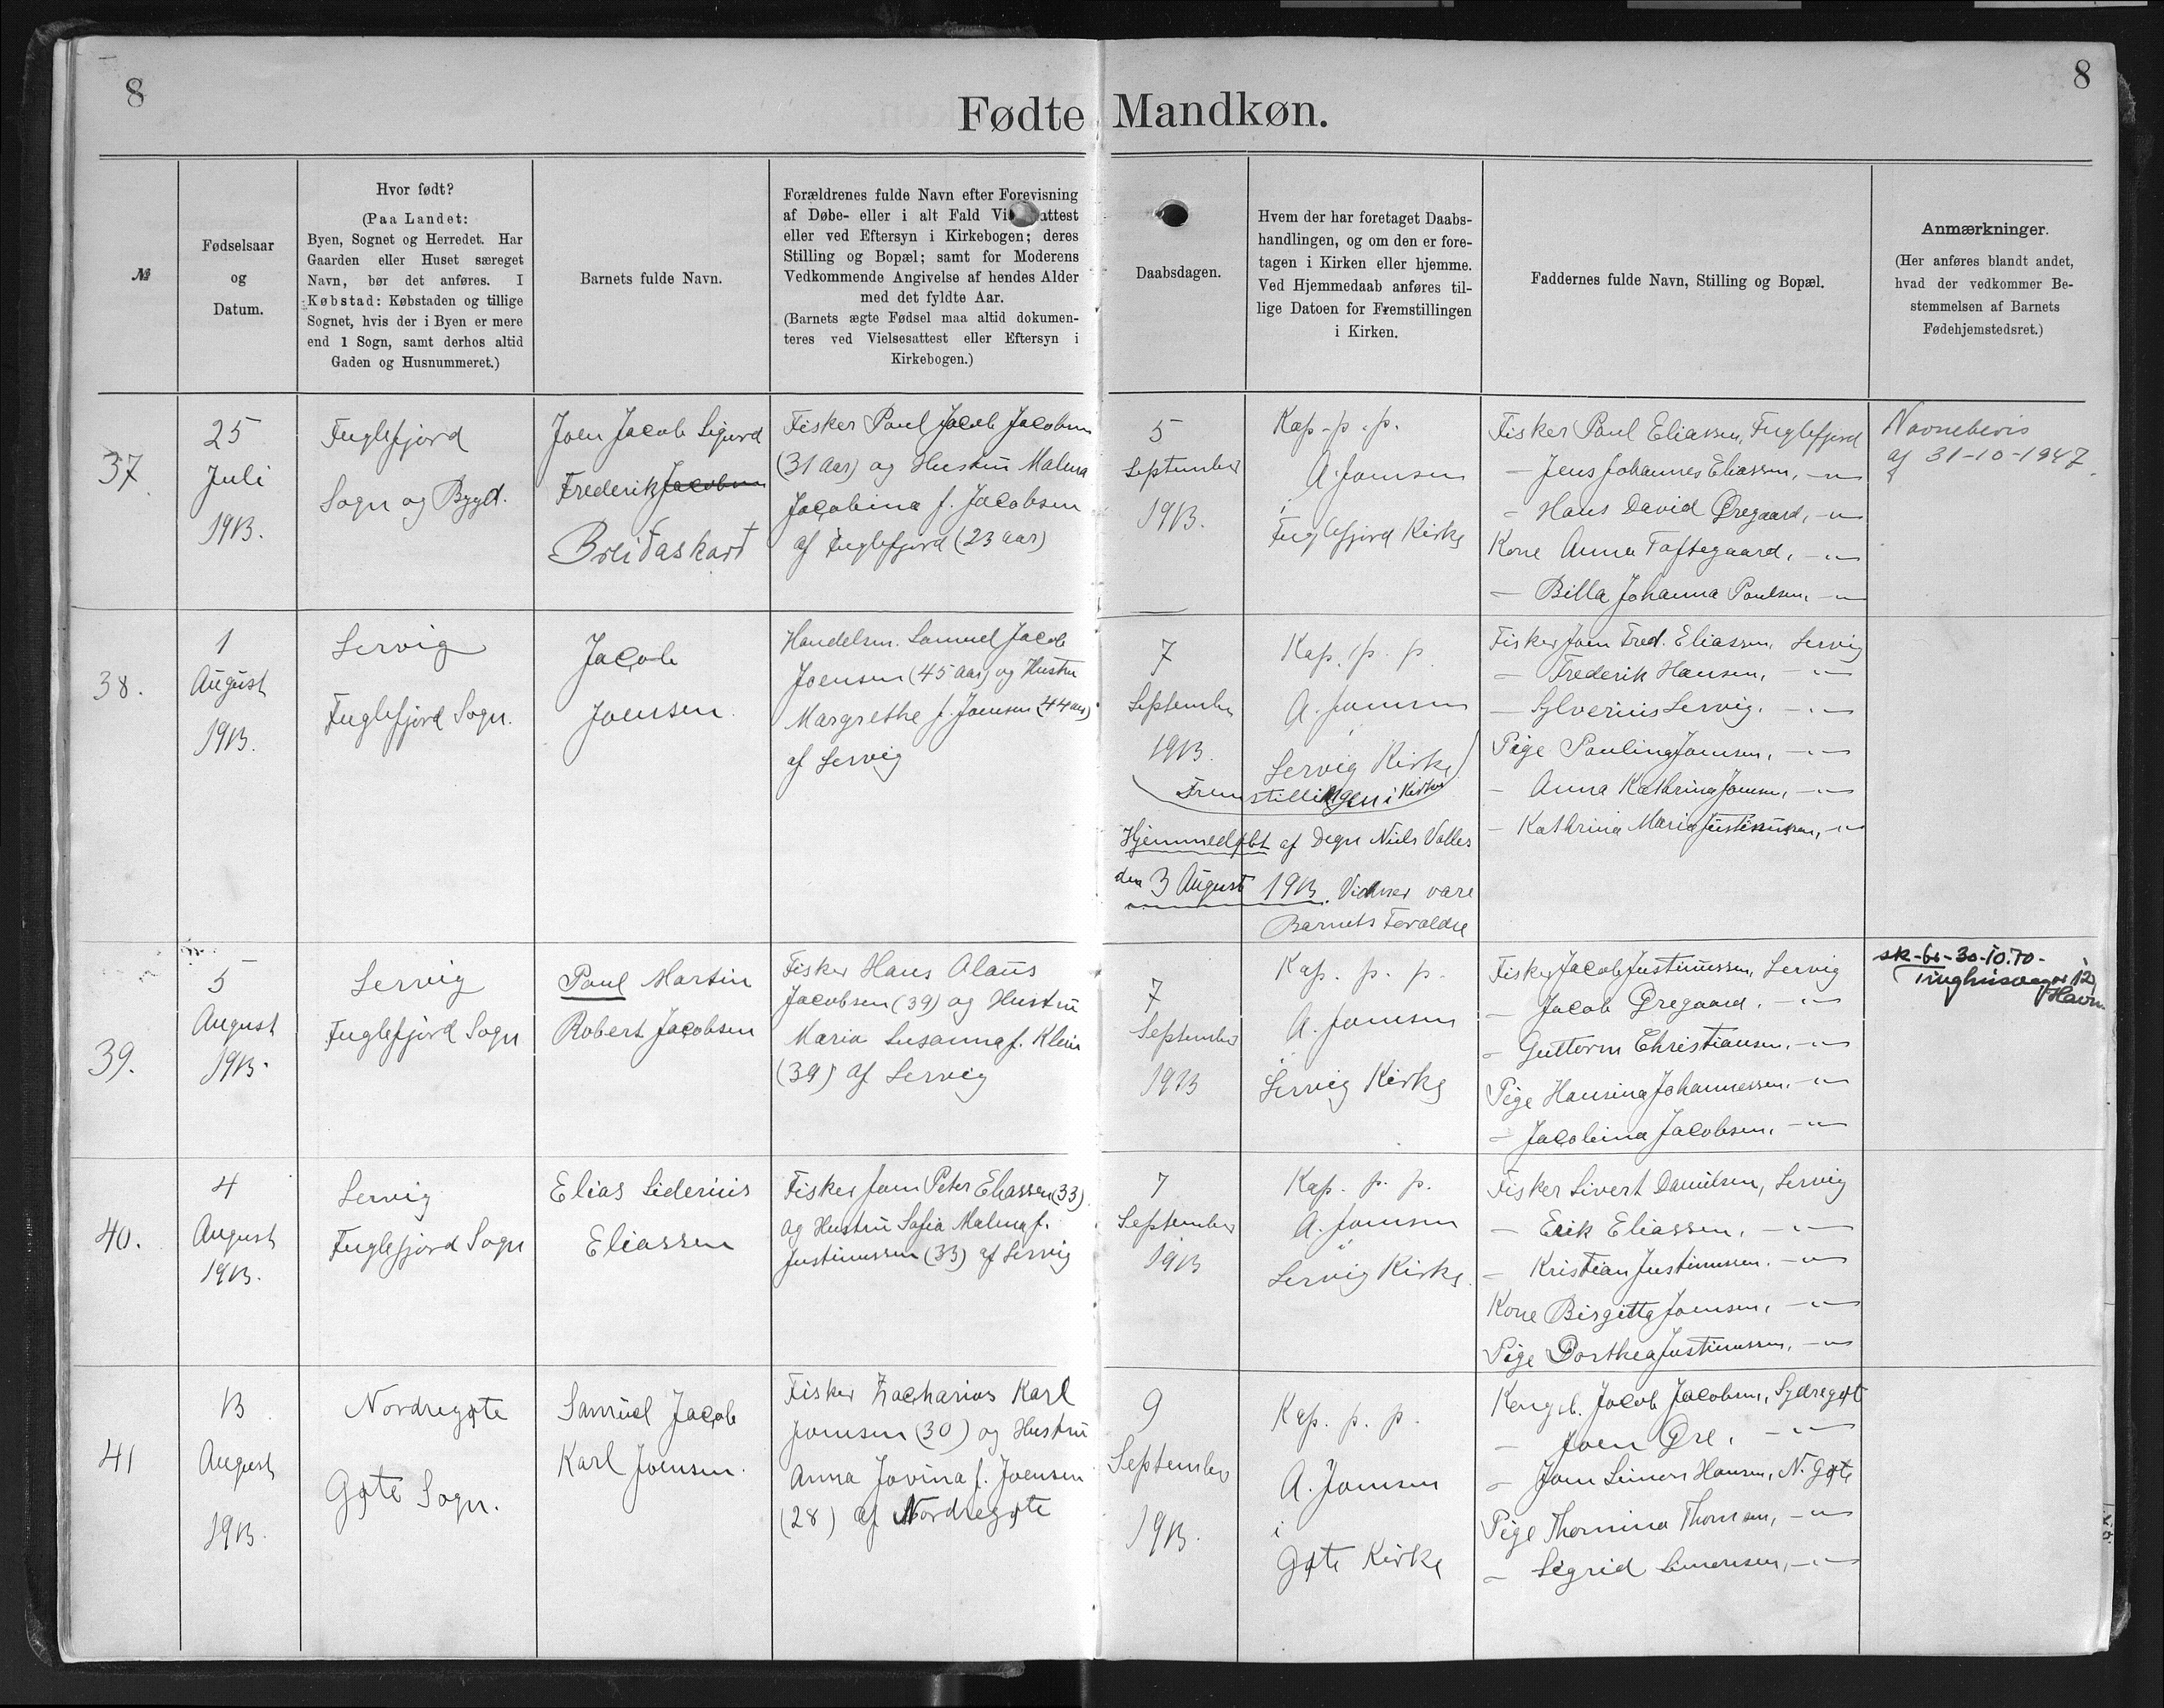 8
8
Fødte Mandkøn.
№
Fødselsaar
og
Datum.
Hvor født?
(Paa Landet:
Byen, Sognet og Herredet. Har
Gaarden eller Huset særeget
Navn, bør det anføres. I
Købstad: Købstaden og tillige
Sognet, hvis der i Byen er mere
end 1 Sogn, samt derhos altid
Gaden og Husnummeret.)
Barnets fulde Navn.
Forældrenes fulde Navn efter Forevisning
af Døbe- eller i alt Fald attest
eller ved Eftersyn i Kirkebogen; deres
Stilling og Bopæl; samt for Moderens
Vedkommende Angivelse af hendes Alder
med det fyldte Aar.
(Barnets ægte Fødsel maa altid dokumen-
teres ved Vielsesattest eller Eftersyn i
Kirkebogen.)
Daabsdagen.
Hvem der har foretaget Daabs-
handlingen, og om den er fore-
tagen i Kirken eller hjemme.
Ved Hjemmedaab anføres til-
lige Datoen for Fremstillingen
i Kirken.
Faddernes fulde Navn, Stilling og Bopæl.
Anmærkninger.
(Her anføres blandt andet,
hvad der vedkommer Be-
stemmelsen af Barnets
Fødehjemstedsret.)
37.
25
Juli
1913.
Fuglefjord
Sogn og Bygd.
Joen Jacob Sigurd
Frederik Jacobsen
Breiðaskarð
Fisker Poul Jacob Jacobsen
(31 Aar) og Hustru Malena
Jacobina f. Jacobsen
af Fuglefjord (23 aar)
5
September
1913.
Kap. p. p.
A. Joensen
i
Fuglefjord Kirke
Fisker Poul Eliassen, Fuglefjord
— Jens Johannes Eliassen, —"—
— Hans David Øregaard, —"—
Kone Anna Toftegaard, —"—
— Billa Johanna Poulsen, —"—
Navnebevis
af 31-10-1947.
38.
1
August
1913.
Lervig
Fuglefjord Sogn.
Jacob
Joensen.
Handelsm. Samuel Jacob
Joensen (45 Aar) og Hustru
Margrethe f. Joensen (44 aar)
af Lervig
7
September
1913.
Kap. p. p.
A. Joensen
i
Lervig Kirke
Fremstillingen i Kirken
Hjemmedøbt af Degn Niels
den 3 August 1913. Vidner vare
Barnets Forældre
Fisker Joen Fred. Eliassen, Lervig
— Frederik Hansen, —"—
— Sylverius Lervig, —"—
Pige Paulina Joensen, —"—
— Anna Kathrina Joensen, —"—
— Kathrina Maria Justinussen, —"—
39.
5
August
1913.
Lervig
Fuglefjord Sogn
Poul Martin
Robert Jacobsen
Fisker Hans Olaus
Jacobsen (39) og Hustru
Maria Susanna f. Klein
(39) af Lervig
7
September
1913
Kap. p. p.
A. Joensen
i
Lervig Kirke
Fisker Jacob Justinussen, Lervig
— Jacob Øregaard, —"—
— Guttorm Christiansen, —"—
Pige Hansina Johannessen, —"—
— Jacobina Jacobsen, —"—
sk-br-30-10.70-
12,
Havn
40.
4
August
1913.
Lervig
Fuglefjord Sogn
Elias Siderius
Eliassen
Fisker Joen Peter Eliassen (33)
og Hustru Sofia Malena f.
Justinussen (33) af Lervig
7
September
1913
Kap. p. p.
A. Joensen
i
Lervig Kirke.
Fisker Sivert Danielsen, Lervig
— Erik Eliassen, —"—
— Kristian Justinussen, —"—
Kone Birgitta Joensen, —"—
Pige Dorthea Justinussen, —"—
41
13
August
1913.
Nordregøte
Gøte Sogn.
Samuel Jacob
Karl Joensen.
Fisker Zacharias Karl
Joensen (30) og Hustru
Anna Jovina f. Joensen
(28) af Nordregøte
9
September
1913.
Kap. p. p.
A. Joensen
i
Gøte Kirke
Kongsb. Jacob Jacobsen, Sydregøte
— Joen Øre, —"—
— Joen Simon Hansen, N. Gøte
Pige Thomina Thomsen, —"—
— Sigrid Simonsen, —"—